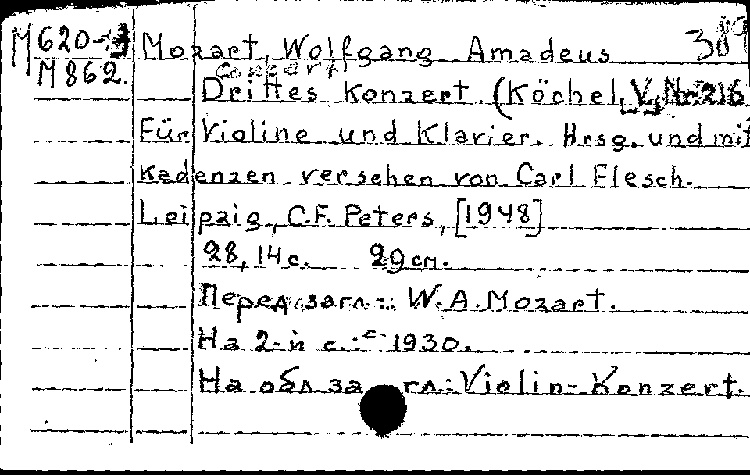 M620- Mozart, Wolfgang Amadeus 389
M862. Concert
Drittes Konzert (Köchel V. Nr. 216
Für Violine und Klavier. Hrsg. und mit
Kadenzen versehen von Carl Flesch.
Leipzig, C.F. Peters, [1948]
28, 14 с. 29 см.
Перед загл.: W.A. Mozart.
На 2-й с.: c 1930.
На обл. загл.: Violin-Konzert.